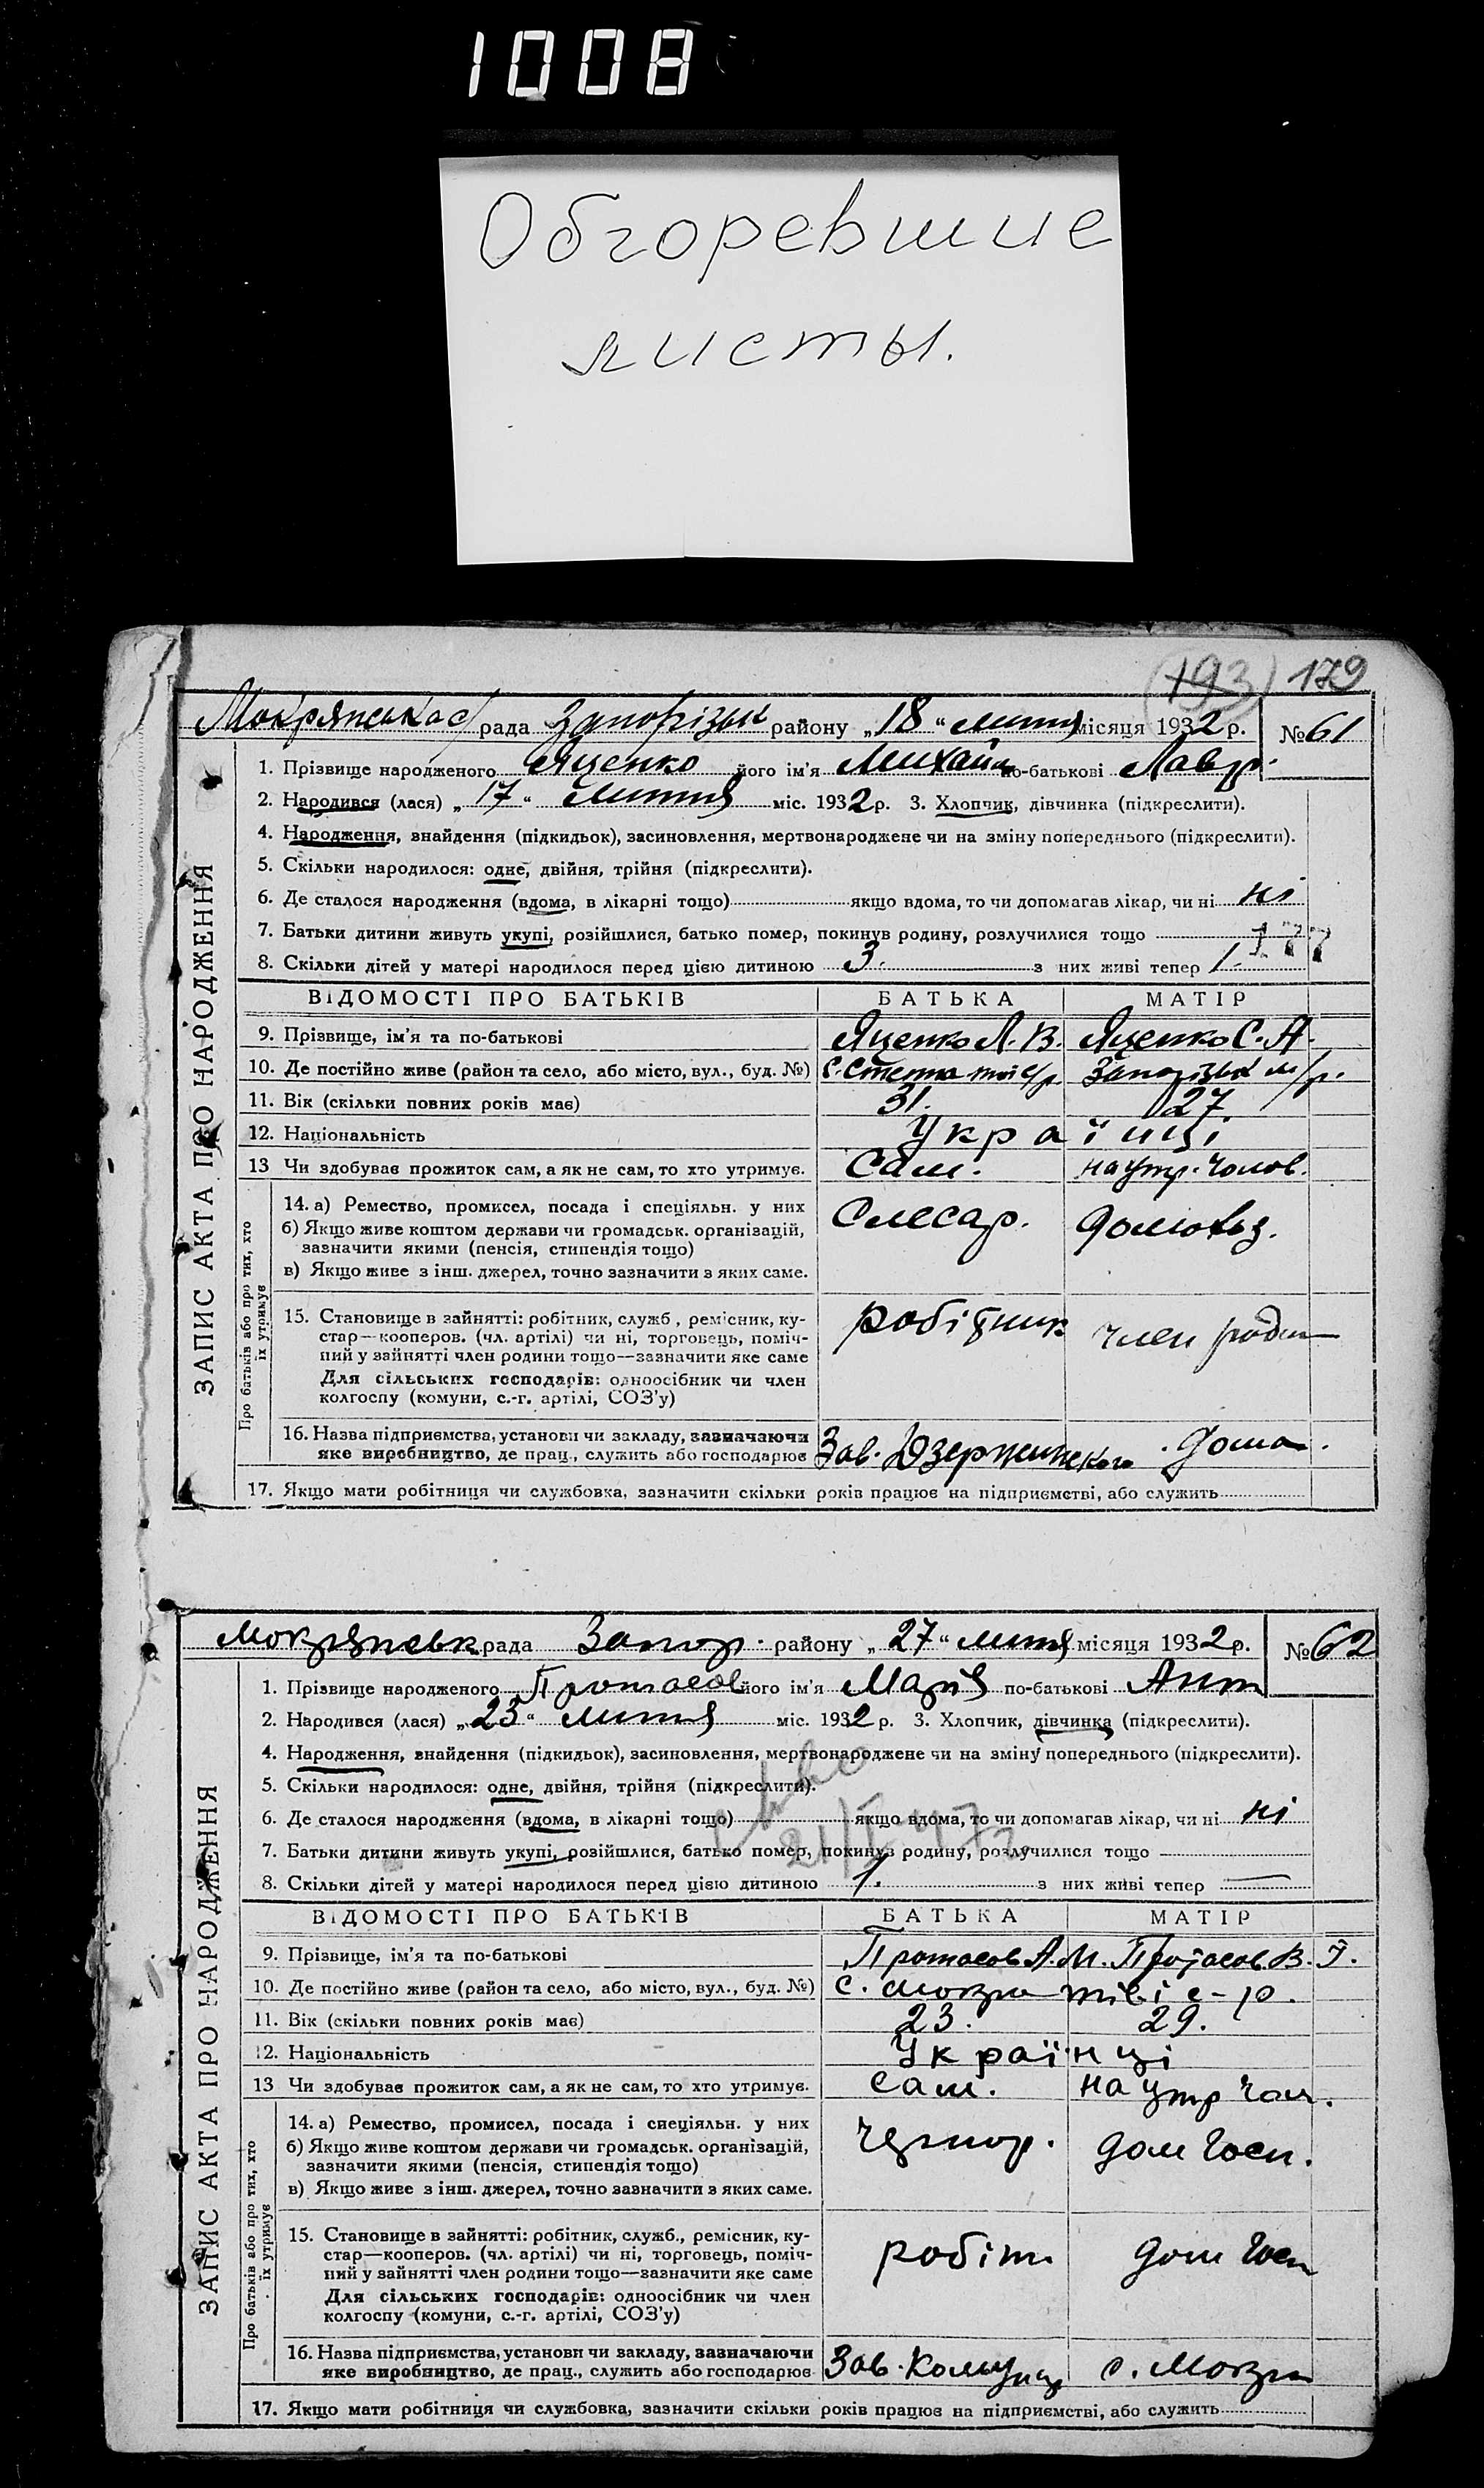 1008
Обгоревшие
листы.
(193) 179
Мокрянська с/рада Запорізьк району „18“ липня місяця 1932 р. № 61
ЗАПИС АКТА ПРО НАРОДЖЕННЯ
1. Прізвище народженого Яценко його ім'я Михайл по-батькові Лавр.
2. Народився (лася) „17“ липня міс. 1932 р. 3. Хлопчик, дівчинка (підкреслити).
4. Народження, внайдення (підкидьок), засиновлення, мертвонароджене чи на зміну попереднього (підкреслити).
5. Скільки народилося: одне, двійня, трійня (підкреслити).
6. Де сталося народження (вдома, в лікарні тощо) якщо вдома, то чи допомагав лікар, чи ні ні
7. Батьки дитини живуть укупі, розійшлися, батько помер, покинув родину, розлучилися тощо
177
8. Скільки дітей у матері народилося перед цією дитиною 3. з них живі тепер 1.
ВІДОМОСТІ ПРО БАТЬКІВ БАТЬКА МАТІР
9. Прізвище, ім'я та по-батькові Яценко Л. В. Яценко С. А.
10. Де постійно живе (район та село, або місто, вул., буд. №) с. Запорізьк
11. Вік (скільки повних років має) 31. 27.
12. Національність Українці
13 Чи здобуває прожиток сам, а як не сам, то хто утримує. Сам. на утр. чолов.
Про батьків або про тих, хто
їх утримує
14. а) Ремество, промисел, посада і спеціяльн. у них Слесар.
б) Якщо живе коштом держави чи громадськ. організацій,
зазначити якими (пенсія, стипендія тощо)
в) Якщо живе з інш. джерел, точно зазначити з яких саме.
15. Становище в зайнятті: робітник, служб, ремісник, ку- робітник член родин
стар—кооперов. (чл. артілі) чи ні, торговець, поміч-
ний у зайнятті член родини тощо—зазначити яке саме
Для сільських господарів: одноосібник чи член
колгоспу (комуни, с.-г. артілі, СОЗ'у)
16. Назва підприємства, установи чи закладу, зазначаючи
яке виробництво, де прац., служить або господарює Зав. Дзержинского дома.
17. Якщо мати робітниця чи службовка, зазначити скільки років працює на підприємстві, або служить
Мокрянськ рада Запор. району „27“ липня місяця 1932 р. № 62
ЗАПИС АКТА ПРО НАРОДЖЕННЯ
1. Прізвище народженого Протасов його ім'я Марія по-батькові Ант
2. Народився (лася) „23“ липня міс. 1932 р. 3. Хлопчик, дівчинка (підкреслити).
4. Народження, внайдення (підкидьок), засиновлення, мертвонароджене чи на зміну попереднього (підкреслити).
5. Скільки народилося: одне, двійня, трійня (підкреслити).
6. Де сталося народження (вдома, в лікарні тощо) якщо вдома, то чи допомагав лікар, чи ні ні
7. Батьки дитини живуть укупі, розійшлися, батько помер, покинув родину, розлучилися тощо
8. Скільки дітей у матері народилося перед цією дитиною 1. з них живі тепер —
ВІДОМОСТІ ПРО БАТЬКІВ БАТЬКА МАТІР
9. Прізвище, ім'я та по-батькові Протасов А. И. Протасов. В. І.
10. Де постійно живе (район та село, або місто, вул., буд. №) с. с-р.
11. Вік (скільки повних років має) 23. 29.
12. Національність Українці
13 Чи здобуває прожиток сам, а як не сам, то хто утримує. сам. на утр чол.
Про батьків або про тих, хто
їх утримує
14. а) Ремество, промисел, посада і спеціяльн. у них чернор. дом госп.
б) Якщо живе коштом держави чи громадськ. організацій,
зазначити якими (пенсія, стипендія тощо)
в) Якщо живе з інш. джерел, точно зазначити з яких саме.
15. Становище в зайнятті: робітник, служб., ремісник, ку- робітн дом госп
стар—кооперов. (чл. артілі) чи ні, торговець, поміч-
ний у зайнятті член родини тощо—зазначити яке саме
Для сільських господарів: одноосібник чи член
колгоспу (комуни, с.-г. артілі, СОЗ'у)
16. Назва підприємства, установи чи закладу, зазначаючи
яке виробництво, де прац., служить або господарює Зав. Комунар с. Мокра
17. Якщо мати робітниця чи службовка, зазначити скільки років працює на підприємстві, або служить